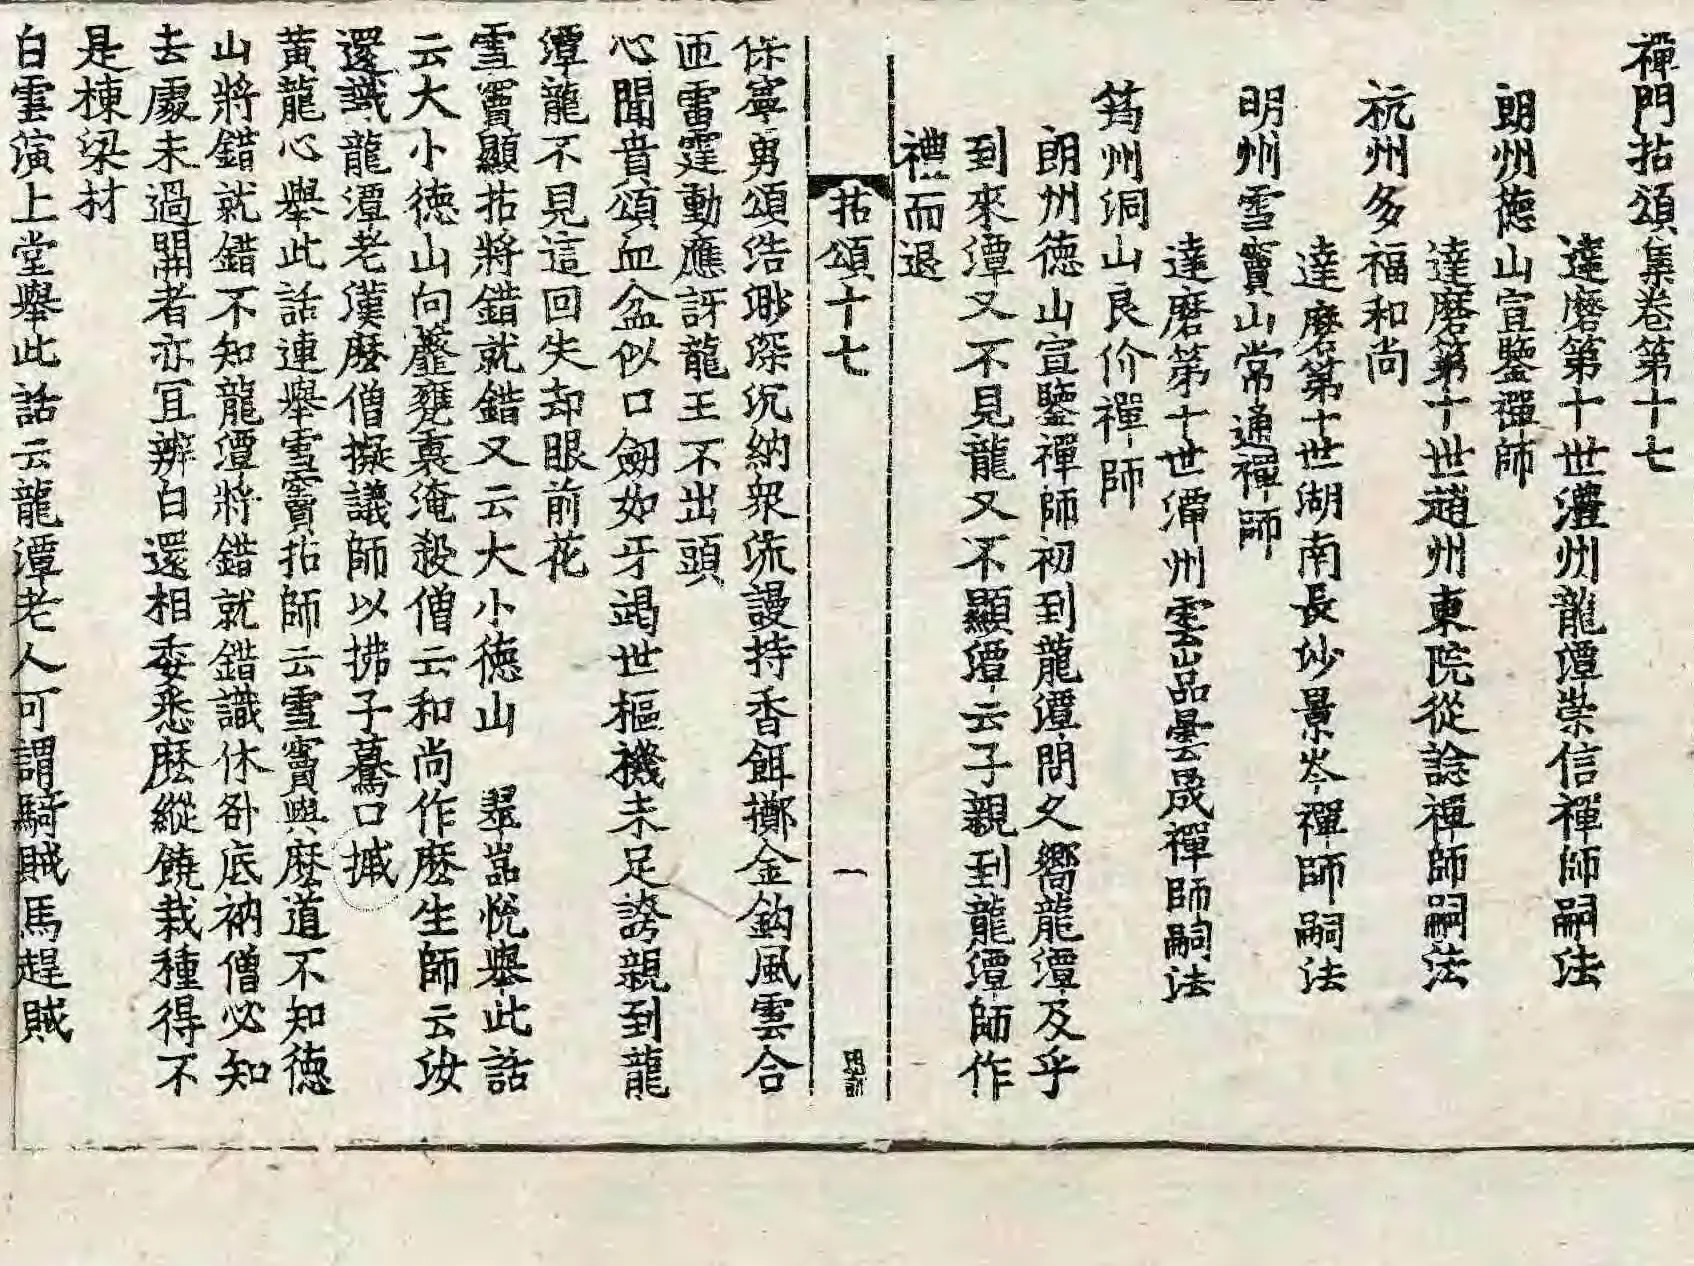 禪門拈頌集卷第十七
達磨第十世澧州龍潭崇信禪師嗣法
朗州德山宣鑒禪師
達磨第十世趙州東院從諗禪師嗣法
杭州多福和尚
達磨第十世湖南長沙景岑禪師嗣法
明州雪竇山常通禪師
達磨第十世潭州雲嵓曇晟禪師嗣法
筠州洞山良价禪師
朗州德山宣鑒禪師初到龍潭問久嚮龍潭及乎
到來潭又不見龍又不顯潭云子親到龍潭師作
禮而退
拈頌十七 一
保寧勇頌浩渺深沉納衆流謾持香餌擲金鈎風雲合
匝雷霆動應訝龍王不出頭
心聞賁頌血盆似口劒如牙竭世樞機未足誇親到龍
潭龍不見這回失却眼前花
雪竇顯拈將錯就錯又云大小德山 翠嵓悅擧此話
云大小德山向虀甕裏淹殺僧云和尚作麽生師云汝
還識龍潭老漢麽僧擬議師以拂子驀口摵
黃龍心擧此話連擧雪竇拈師云雪竇與麽道不知德
山將錯就錯不知龍潭將錯就錯識休咎底衲僧必知
去處未過關者亦冝辨白還相委悉麽縱饒栽種得不
是棟梁材
白雲演上堂擧此話云龍潭老人可謂騎賊馬趕賊